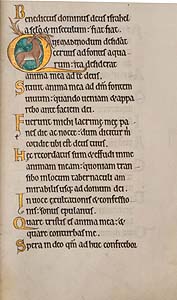 Benedictus dominus deus israhel
a sclo & in seculum : fiat fiat.
Quemadmodum desiderat
cervus ad fontes aqua
rum : ita desiderat
anima mea ad te deus.
Sitivit anima mea ad dm fontem
vivum : quando veniam & appa
rebo ante faciem dei.
Fuerunt michi lacrime mee pa
nes die ac nocte : dum dicitur m
cotidie ubi est deus tuus.
Hec recordatus sum & effudi in me
animam meam : quoniam tran
sibo in locum tabernaculi am
mirabilis usq; ad domum dei.
In voce exultationis & confessio
nis : sonus epulantis.
Quare tristis es anima mea : &
quare conturbas me.
Spera in deo qm adhuc confitebor